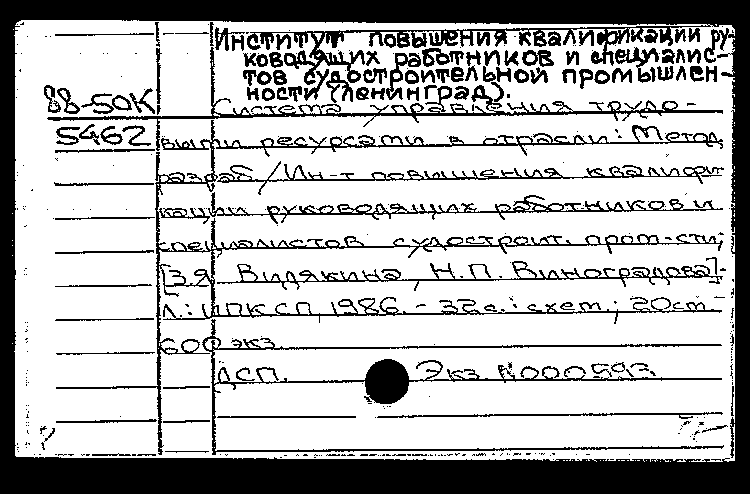 Институт повышения квалификации ру-
ководящих работников и специалис-
тов судостроительной промышлен-
ности (Ленинград).
88-50К
Система управления трудо-
5462
выми ресурсами в отрасли: Метод.
разраб./Ин-т повышения квалифи-
кации руководящих работников и
специалистов судостроит. пром-сти;
[З.Я. Видякина, Н.П. Виноградова].-
Л.: ИПК СП, 1986. - 32 с.: схем.; 20 см. -
600 экз.
ДСП. Экз. №000593